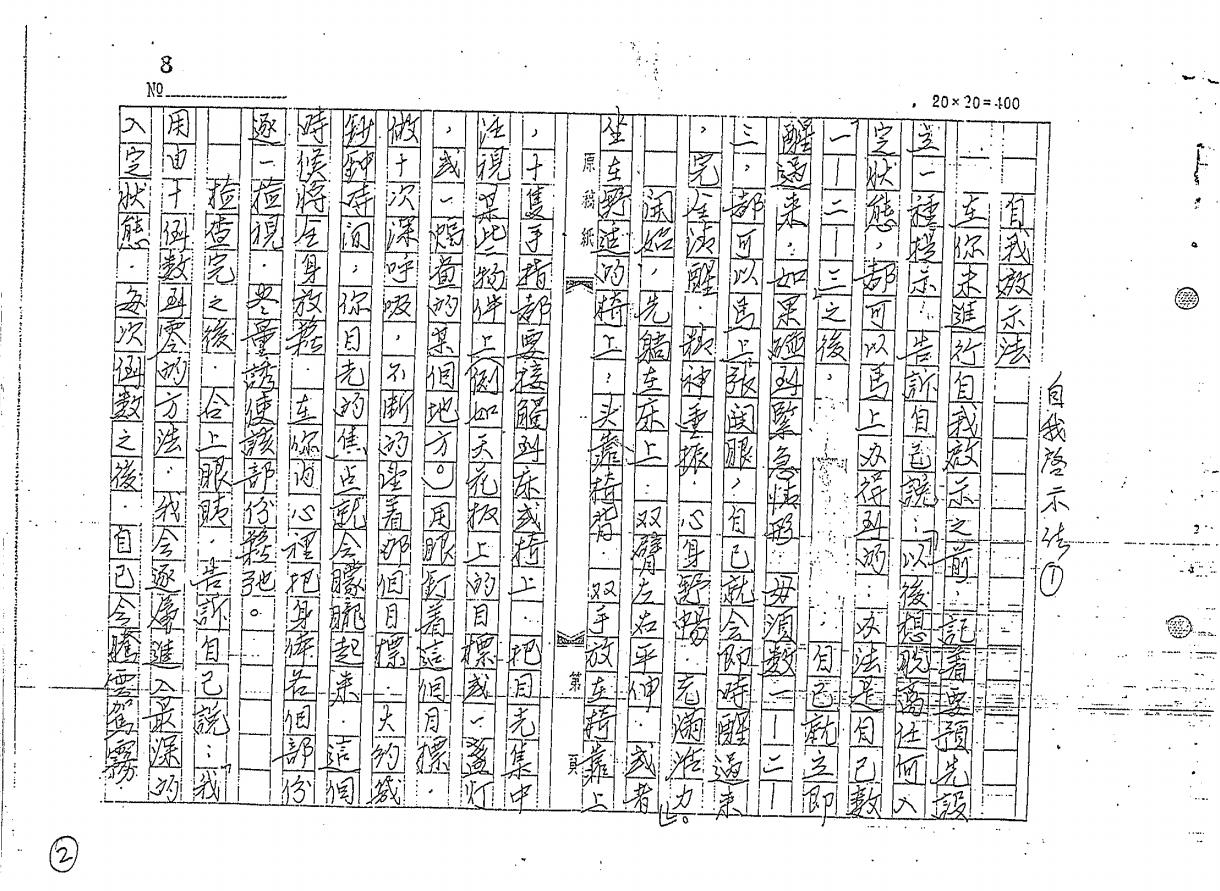 8
№
20×20=400
自我啓示法①
自我啟示法
在你未進行自我啟示之前，記着要預先設
立一種提示，告訴自己說：「以後想脫離任何入
定狀態，都可以馬上办得到的．办法是自己數
一－二－三之後，自己就立即
醒過來；如果碰到緊急情形，毋須數一－二－
三，都可以馬上張開眼，自己就會即時醒過來
，完全清醒．精神重振，心身野暢．充滿活力」。
開始，先躺在床上．双臂左右平伸．或者
坐在野造的椅上，头靠椅背．双手放在椅靠上
原稿紙
第　頁
，十隻手指都要接觸到床或椅上．把目光集中
注視某些物件上(例如天花板上的目標或一盞灯
，或一幅畫的某個地方)。用眼釘着這個目標．
做十次深呼吸，不断的望着那個目標．大約幾
鈔鐘時间，你目光的焦点就會朦朧起來．這個
時候將全身放鬆．在你的心裡把身体各個部份
逐一檢視．尽量誘使該部份鬆弛。
檢查完之後．合上眼睛．告訴自己說：「我
用由十倒數到零的方法．我会逐漸進入最深的
入定狀態．每次倒數之後．自己会騰雲駕霧
②